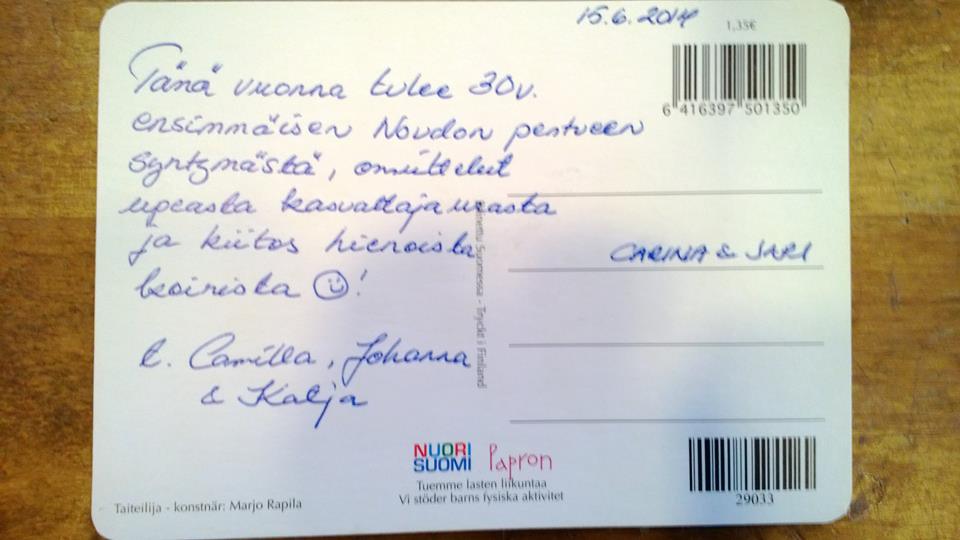 15.6.2014
1,35€
6 416397 501350
Tänä vuonna tulee 30v.
ensimmäisen Novdon pentueen
syntymästä, onnittelut
upeasta kasvattajaurasta
ja kiitos hienoista
koirista ☺!
t. Camilla, Johanna
& Katja
CARINA & JARI
Painettu Suomessa - Tryckt i Finland
NUORI
SUOMI
Papron
Tuemme lasten liikuntaa
Vi stöder barns fysiska aktivitet
Taiteilija - konstnär: Marjo Rapila
29033